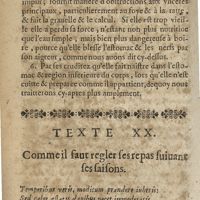 impur, fournit matiere à obstructions aux visceres
principaux, particulierement au foye & à la ratte,
& fait la gravelle & le calcul. Si elle est trop vieil-
le elle a perdu sa force, n'estant non plus nutritive
que l'autre: mais bien plus dangereuse à boi-
re, pource qu'elle blesse l'estomac & les nerfs par
son aigreur, comme nous avons dit cy-dessus.
6. Par les cruditez qu'elle fait naistre dans l'esto-
mac & region inferieure du corps, lors qu'elle n'est
cuitte & preparée comme il appartient, dequoy nous
traitterons cy-apres plus amplement.
TEXTE XX.
Comme il faut regler ses repas suivant
ses saisons.
Temporibus veris, modicum prandere iuberis: